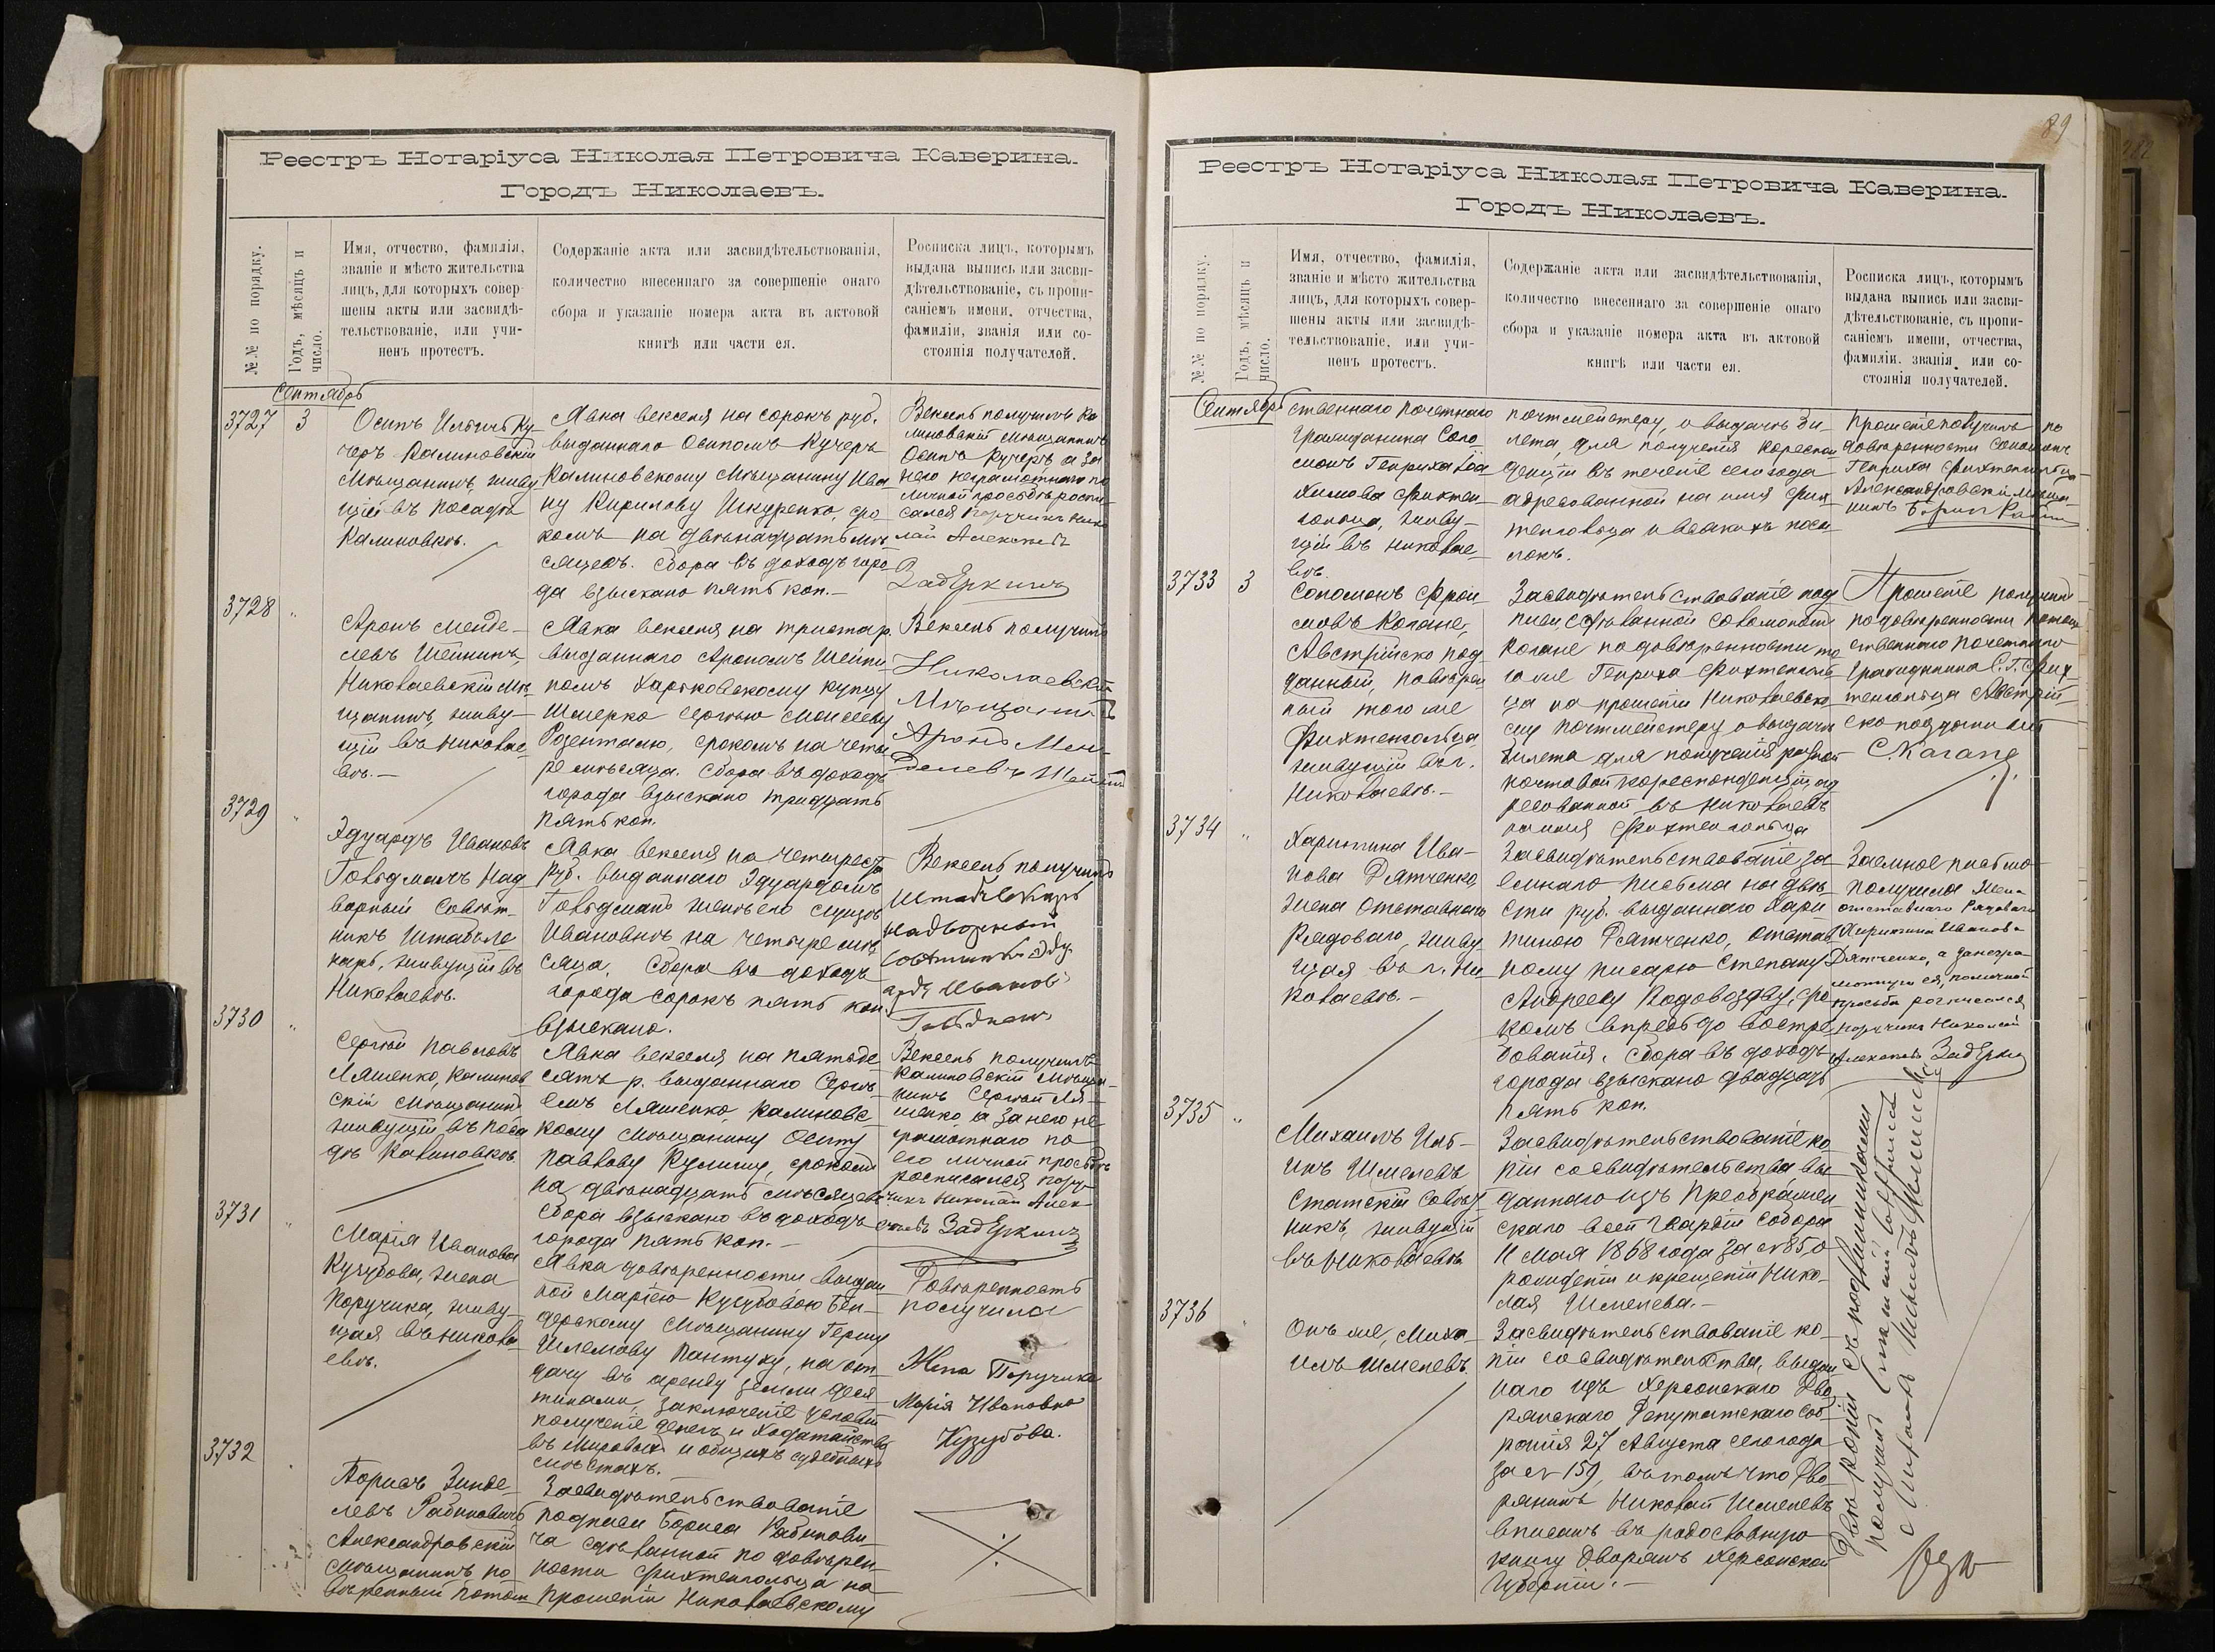 Реестръ Нотаріуса Николая Петровича Каверина.
Городъ Николаевъ.
№.№ по порядку.
Годъ, мѣсяцъ и
число.
Имя, отчество, фамилія,
званіе и мѣсто жительства
лицъ, для которыхъ совер-
шены акты или засвидѣ-
тельствованіе, или учи-
ненъ протестъ.
Содержаніе акта или засвидѣтельствованія,
количество внесеннаго за совершеніе онаго
сбора и указаніе номера акта въ актовой
книгѣ или части ея.
Росписка лицъ, которымъ
выдана выпись или засви-
дѣтельствованіе, съ пропи-
саніемъ имени, отчества,
фамиліи, званія или со-
стоянія получателей.
Сентябрь
3727
3
Осипъ Ильичъ Ку-
черъ Калиновскій
Мѣщанинъ, живу-
щій въ посадѣ
Калиновкѣ.
Явка векселя на сорокъ руб.
выданнаго Осипомъ Кучеръ
Калиновскому Мѣщанину Ива-
ну Кирилову Шкуренко, сро
комъ на двѣнадцать мѣ
сяцевъ. Сбора въ доходъ горо-
да взыскано пять коп.—
Вексель получилъ Ка
линовскій Мѣщанинъ
Осипъ Кучеръ, а за
него неграмотнаго по
личной просьбѣ роспи-
сался Поручикъ Нико
лай Алексѣевъ
Задёркинъ
3728
"
Аронъ Менде-
левъ Шейнинъ,
Николаевскій Мѣ-
щанинъ, живу-
щій въ Николае-
вѣ.—
Явка векселя на триста р.
выданнаго Арономъ Шейни
номъ Харьковскому купцу
Шмерко Сергѣю Моисееву
Розенталю, срокомъ на четы
ре мѣсяца. Сбора въ доходъ
города взыскано тридцать
пять коп.
Вексель получилъ
Николаевскій
Мѣщанинъ
Аронъ Мен-
делевъ Шейнинъ
3729
"
Эдуардъ Ивановъ
Гольдманъ Над
ворный Совѣт-
никъ Штабъ-Ле
карь, живущій въ
Николаевѣ.
Явка векселя на четыреста
руб. выданнаго Эдуардомъ
Гольдманъ женѣ его Луизѣ
Ивановнѣ, на четыре мѣ
сяца. Сбора въ доходъ
города сорокъ пять коп.
взыскано.
Вексель получилъ
Штабъ Лекарь
надворный
Совѣтникъ Эду
ардъ Ивановъ
Гольдманъ
3730
"
Сергѣй Павловъ
Ляшенко, Калинов
скій Мѣщанинъ
живущій въ поса
дѣ Калиновкѣ.
Явка векселя на пятьде
сятъ р. выданнаго Сергѣ-
емъ Ляшенко, Калиновс-
кому Мѣщанину Осипу
Павлову Кулишу, срокомъ
на двѣнадцать мѣсяцевъ.
Сбора взыскано въ доходъ
города пять коп.—
Вексель получилъ
Калиновскій Мѣща-
нинъ Сергѣй Ля-
шенко, а за него не-
грамотнаго по
его личной просьбѣ
росписался Пору-
чикъ Николай Алек-
сѣевъ Задёркинъ
3731
"
Марія Иванова
Кузубова, жена
Поручика, живу-
щая въ Никола-
евѣ.
Явка довѣренности выдан
ной Маріею Кузубовою Бен-
дерскому Мѣщанину Гершу
Шлемову Пантуху, на от-
дачу въ аренду земли деся
тинами, заключеніе условій
полученіе денегъ и ходатайство
въ Мировыхъ и общихъ судебныхъ
мѣстахъ.
Довѣренность
получила
Жена Поручика
Марія Ивановна
Кузубова.
3732
Борисъ Зинде-
левъ Рабиновичъ
Александровскій
Мѣщанинъ, по-
вѣренный потом
Засвидѣтельствованіе
подписи Бориса Рабинови-
ча сдѣланной по довѣрен
ности Фихтенгольца на
прошеніи Николаевскому
89
Реестръ Нотаріуса Николая Петровича Каверина.
Городъ Николаевъ.
№.№ по порядку.
Годъ, мѣсяцъ и
число.
Имя, отчество, фамилія,
званіе и мѣсто жительства
лицъ, для которыхъ совер-
шены акты или засвидѣ-
тельствованіе, или учи-
ненъ протестъ.
Содержаніе акта или засвидѣтельствованія,
количество внесеннаго за совершеніе онаго
сбора и указаніе номера акта въ актовой
книгѣ или части ея.
Росписка лицъ, которымъ
выдана выпись или засви-
дѣтельствованіе, съ пропи-
саніемъ имени, отчества,
фамиліи. званія или со-
стоянія получателей.
Сентябрь
ственнаго почетнаго
гражданина Соло-
монъ Генриха Іоа
химова Фихтен
гольца, живу-
щій въ Николае-
вѣ.
почтмейстеру, о выдачѣ би-
лета, для полученія кореспон
денціи въ теченіе сего года
адресованной на имя Фих
тенгольца и всякихъ посы
локъ.
Прошеніе получилъ по
довѣренности Соломонъ
Генриха Фихтенгольца
Александровскій Мѣща-
нинъ Борисъ
3733
3
Соломонъ Фрои-
мовъ Кагане,
Австрійско под
данный, повѣрен
ный того же
Фихтенгольца
живущій въ г.
Николаевѣ.—
Засвидѣтельствованіе под
писи, сдѣланной Соломономъ
Кагане по довѣренности то
го же Генриха Фихтенголь-
ца на прошеніи Николаевско
му почтмейстеру о выдачѣ
билета для полученія разной
почтовой кореспонденціи ад
ресованной въ Николаевъ
на имя Фихтенгольца
Прошеніе получилъ
по довѣренности потом
ственнаго почетнаго
Гражданина С. Г. Фих-
тенгольца Австрій-
ско подданный
С. Кагане
3734
"
Харитина Ива-
нова Дятченко,
жена отставнаго
Рядоваго, живу
щая въ г. Ни
колаевѣ.—
Засвидѣтельствованіе за
емнаго письма на двѣ-
сти руб. выданнаго Хари
тиною Дятченко, отстав
ному писарю Степану
Андрееву Водовозову, сро
комъ впредь до востре
бованія. Сбора въ доходъ
города взыскано двадцать
пять коп.
Заемное письмо
получила жена
отставнаго Рядоваго
Харитина Иванова
Дятченко, а за негра-
мотную ея, по личной
просьбѣ росписался
Поручикъ Николай
Алексѣевъ Задёркинъ
3735
"
Михаилъ Иль-
инъ Шмелевъ
Статскій Совѣт
никъ, живущій
въ Николаевѣ
Засвидѣтельствованіе ко
піи со свидѣтельства, вы
даннаго изъ Преображен
скаго всей Гвардіи Собора
11 Мая 1868 года за № 850
рожденіи и крещеніи Нико-
лая Шмелева.—
3736
"
Онъ же, Миха
илъ Шмелевъ.
Засвидѣтельствованіе ко-
піи со свидѣтельства, выдан
наго изъ Херсонскаго Дво
рянскаго Депутатскаго Соб-
ранія 27 Августа сего года
за № 159, въ томъ что Дво
рянинъ Николай Шмелевъ
вписанъ въ родословную
книгу Дворянъ Херсонской
Губерніи.—
Двѣ копіи съ подлинниками
получилъ Статскій Совѣтникъ
Михаилъ Шмелевъ